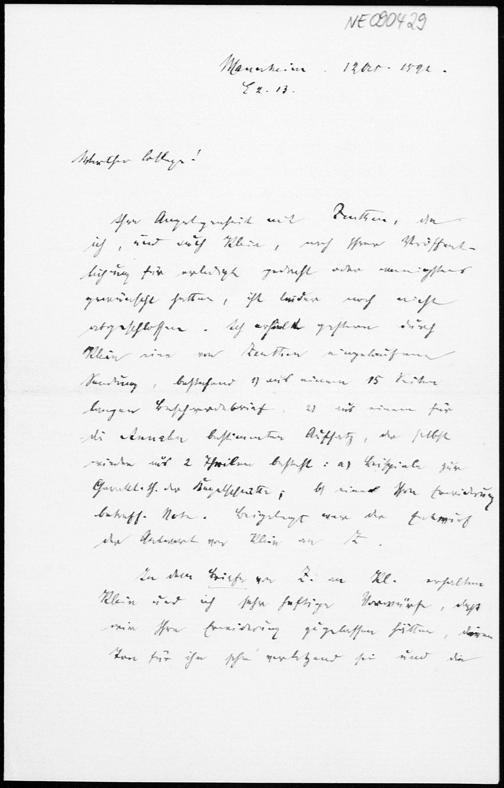 NE090429
Mannheim. 12 Oct. 1892.
E 2. 13.
Werther College!
Ihre Angelegenheit mit Zeuthen, die
ich, und auch Klein, nach Ihrer Veröffent-
lichung für erledigt gedacht oder wenigstens
gewünscht hatten, ist leider noch nicht
abgeschlossen. Ich erhielt gestern durch
Klein eine von Zeuthen eingelaufene
Sendung, bestehend 1) aus einem 15 Seiten
langen Beschwerdebrief, 2) aus einem für
die Annalen bestimmten Aufsatz, der selbst
wieder aus 2 Theilen besteht: a) Beispiele zur
Charakt. th. der Kegelschnitte; b) einer Ihre Erwiderung
betreff. Note. Beigelegt war der Entwurf
der Antwort von Klein an Z.
In dem Briefe von Z. an Kl. erhalten
Klein und ich sehr heftige Vorwürfe, daß
wir Ihre Erwiderung zugelassen hätten, deren
Ton für ihn sehr verletzend sei und die